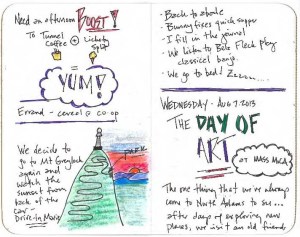 Need an afternoon BOOST!
To Tunnel Coffee + Lickety Split
= YUM!
Errand - cereal @ co-op
We decide to
go to Mt Greylock
again and
watch the
sunset from
back of the
car -
Drive-In Movie
PARK
- Back to abode
- Bunny fixes quick supper
- I fill in the journal
- We listen to Bela Fleck play
classical banjo.
- We go to bed! Zzzzz...
WEDNESDAY - AUG 7. 2013
THE DAY OF
ART
AT MASS MoCA
The one thing that we've always
come to North Adams to see...
after days of exploring new
places, we visit an old friend